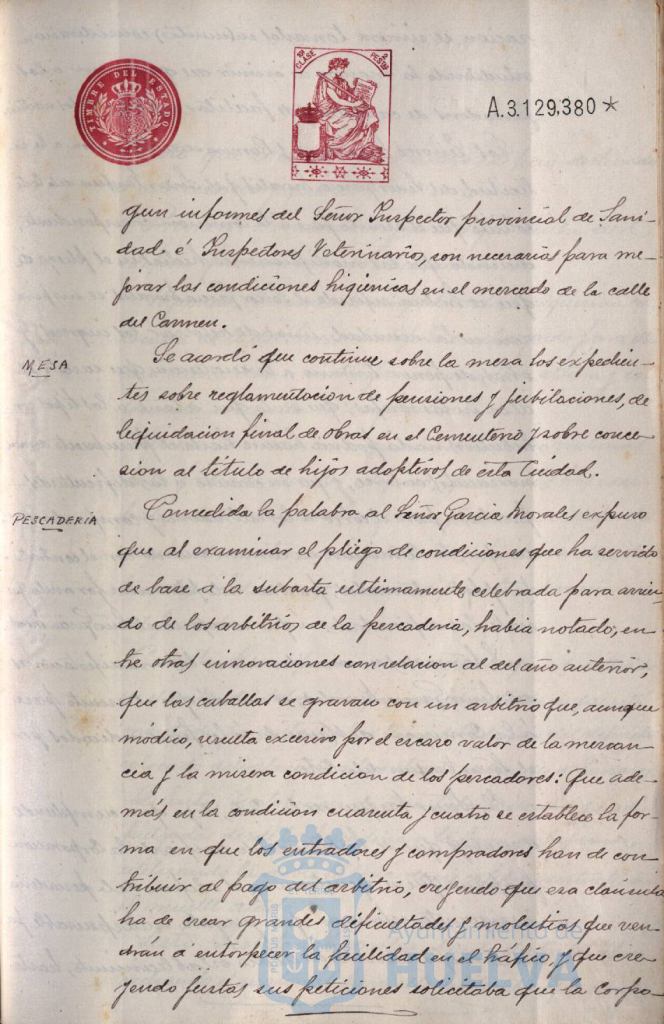 TIMBRE DEL ESTADO
10ª CLASE
2 PESETAS
A.3.129,380 *
gun informes del Señor Inspector provincial de Sani-
dad é Inspectores Veterinarios, son necesarias para me-
jorar las condiciones higiénicas en el mercado de la calle
del Carmen.
MESA
Se acordó que continue sobre la mesa los expedien-
tes sobre reglamentacion de pensiones y jubilaciones, de
liquidacion final de obras en el Cementerio y sobre conce-
sion al título de hijos adoptivos de esta Ciudad.
PESCADERIA
Concedida la palabra al Señor Garcia Morales expuso
que al examinar el pliego de condiciones que ha servido
de base á la subasta ultimamente celebrada para arrien-
do de los arbitrios de la pescaderia, habia notado, en-
tre otras innovaciones con relacion al del año anterior,
que las caballas se gravan con un arbitrio que, aunque
módico, resulta excesivo por el escaso valor de la mercan-
cia y la misera condicion de los pescadores: Que ade-
más en la condicion cuarenta y cuatro se establece la for-
ma en que los entradores y compradores han de con-
tribuir al pago del arbitrio, creyendo que esa claúsula
ha de crear grandes dificultades y molestias que ven-
drán á entorpecer la facilidad en el tráfico, y que cre-
yendo justas sus peticiones solicitaba que la Corpo-
Ayuntamiento de
HUELVA